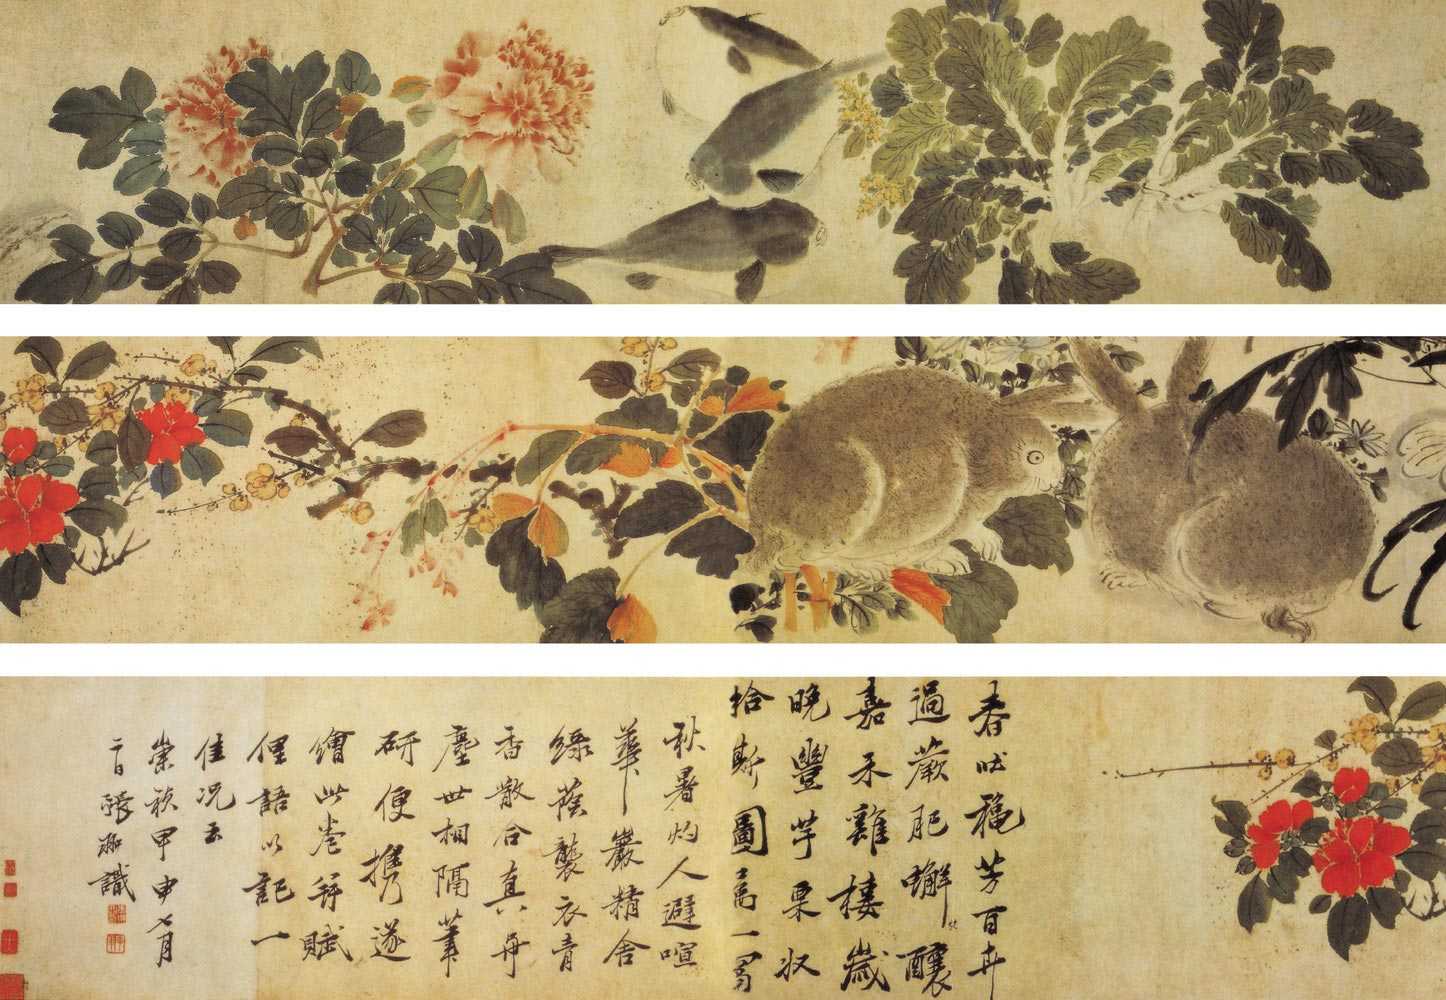 春畦穐芳百卉
過蕨肥蠏釀
嘉禾雞棲歲
晚豐芋栗收
拾斯圖寫一
秋暑灼人避喧
華巖精舍
綠蔭襲衣青
香散合真與
塵世相隔筆
研便攜遂
繪此卷并賦
俚語以記一
佳况云
崇禎甲申七月
二日張 識